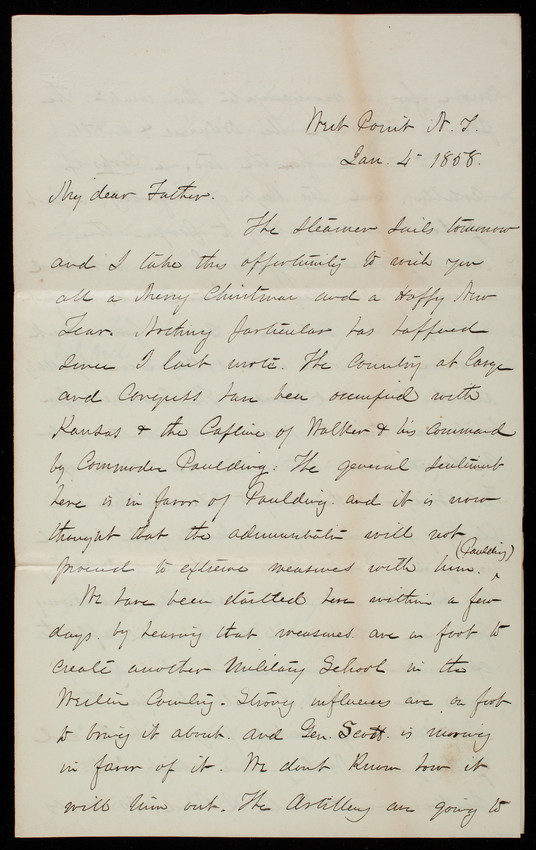 West Point N. Y.
Jan. 4 1858.
My dear Father.
The steamer sails tomorrow
and I take this opportunity to wish you
all a Merry Christmas and a Happy New
Year. Nothing particular has happened
since I last wrote. The Country at large
and Congress have been occupied with
Kansas & the Capture of Walker & his Command
by Commodore Paulding. The general sentiment
here is in favor of Paulding. and it is now
thought that the administration will not
proceed to extreme measures with him. (Paulding)
We have been startled here within a few
days. by hearing that measures are on foot to
create another Military School in the
Western Country. Strong influences are on foot
to bring it about. and Gen. Scott. is moving
in favor of it. We dont know how it
will turn out. The Artillery are going to